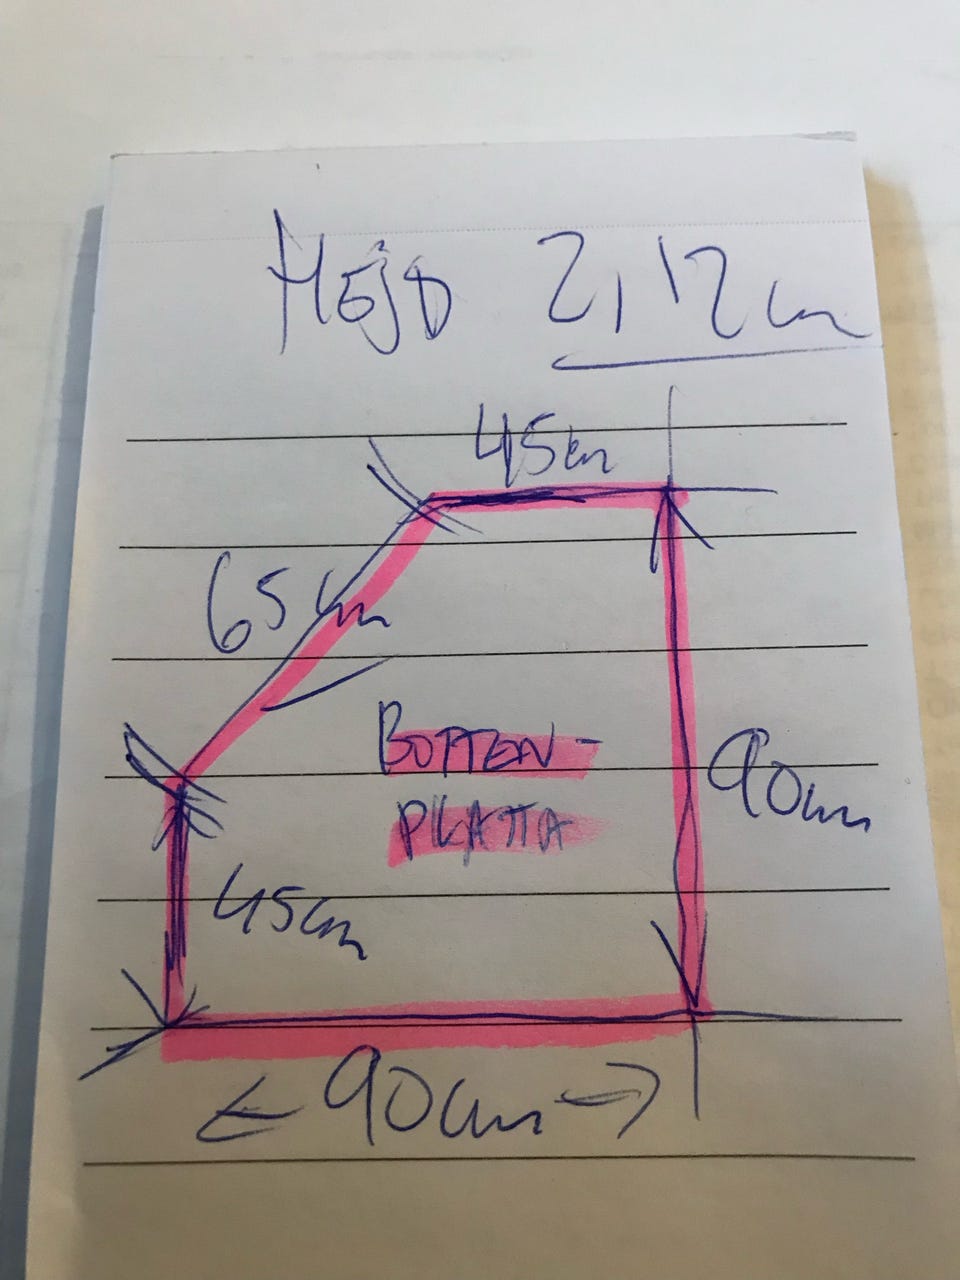 HÖJD 2,12 cm
45 cm
65 cm
BOTTEN-
PLATTA
90 cm
45 cm
← 90 cm →